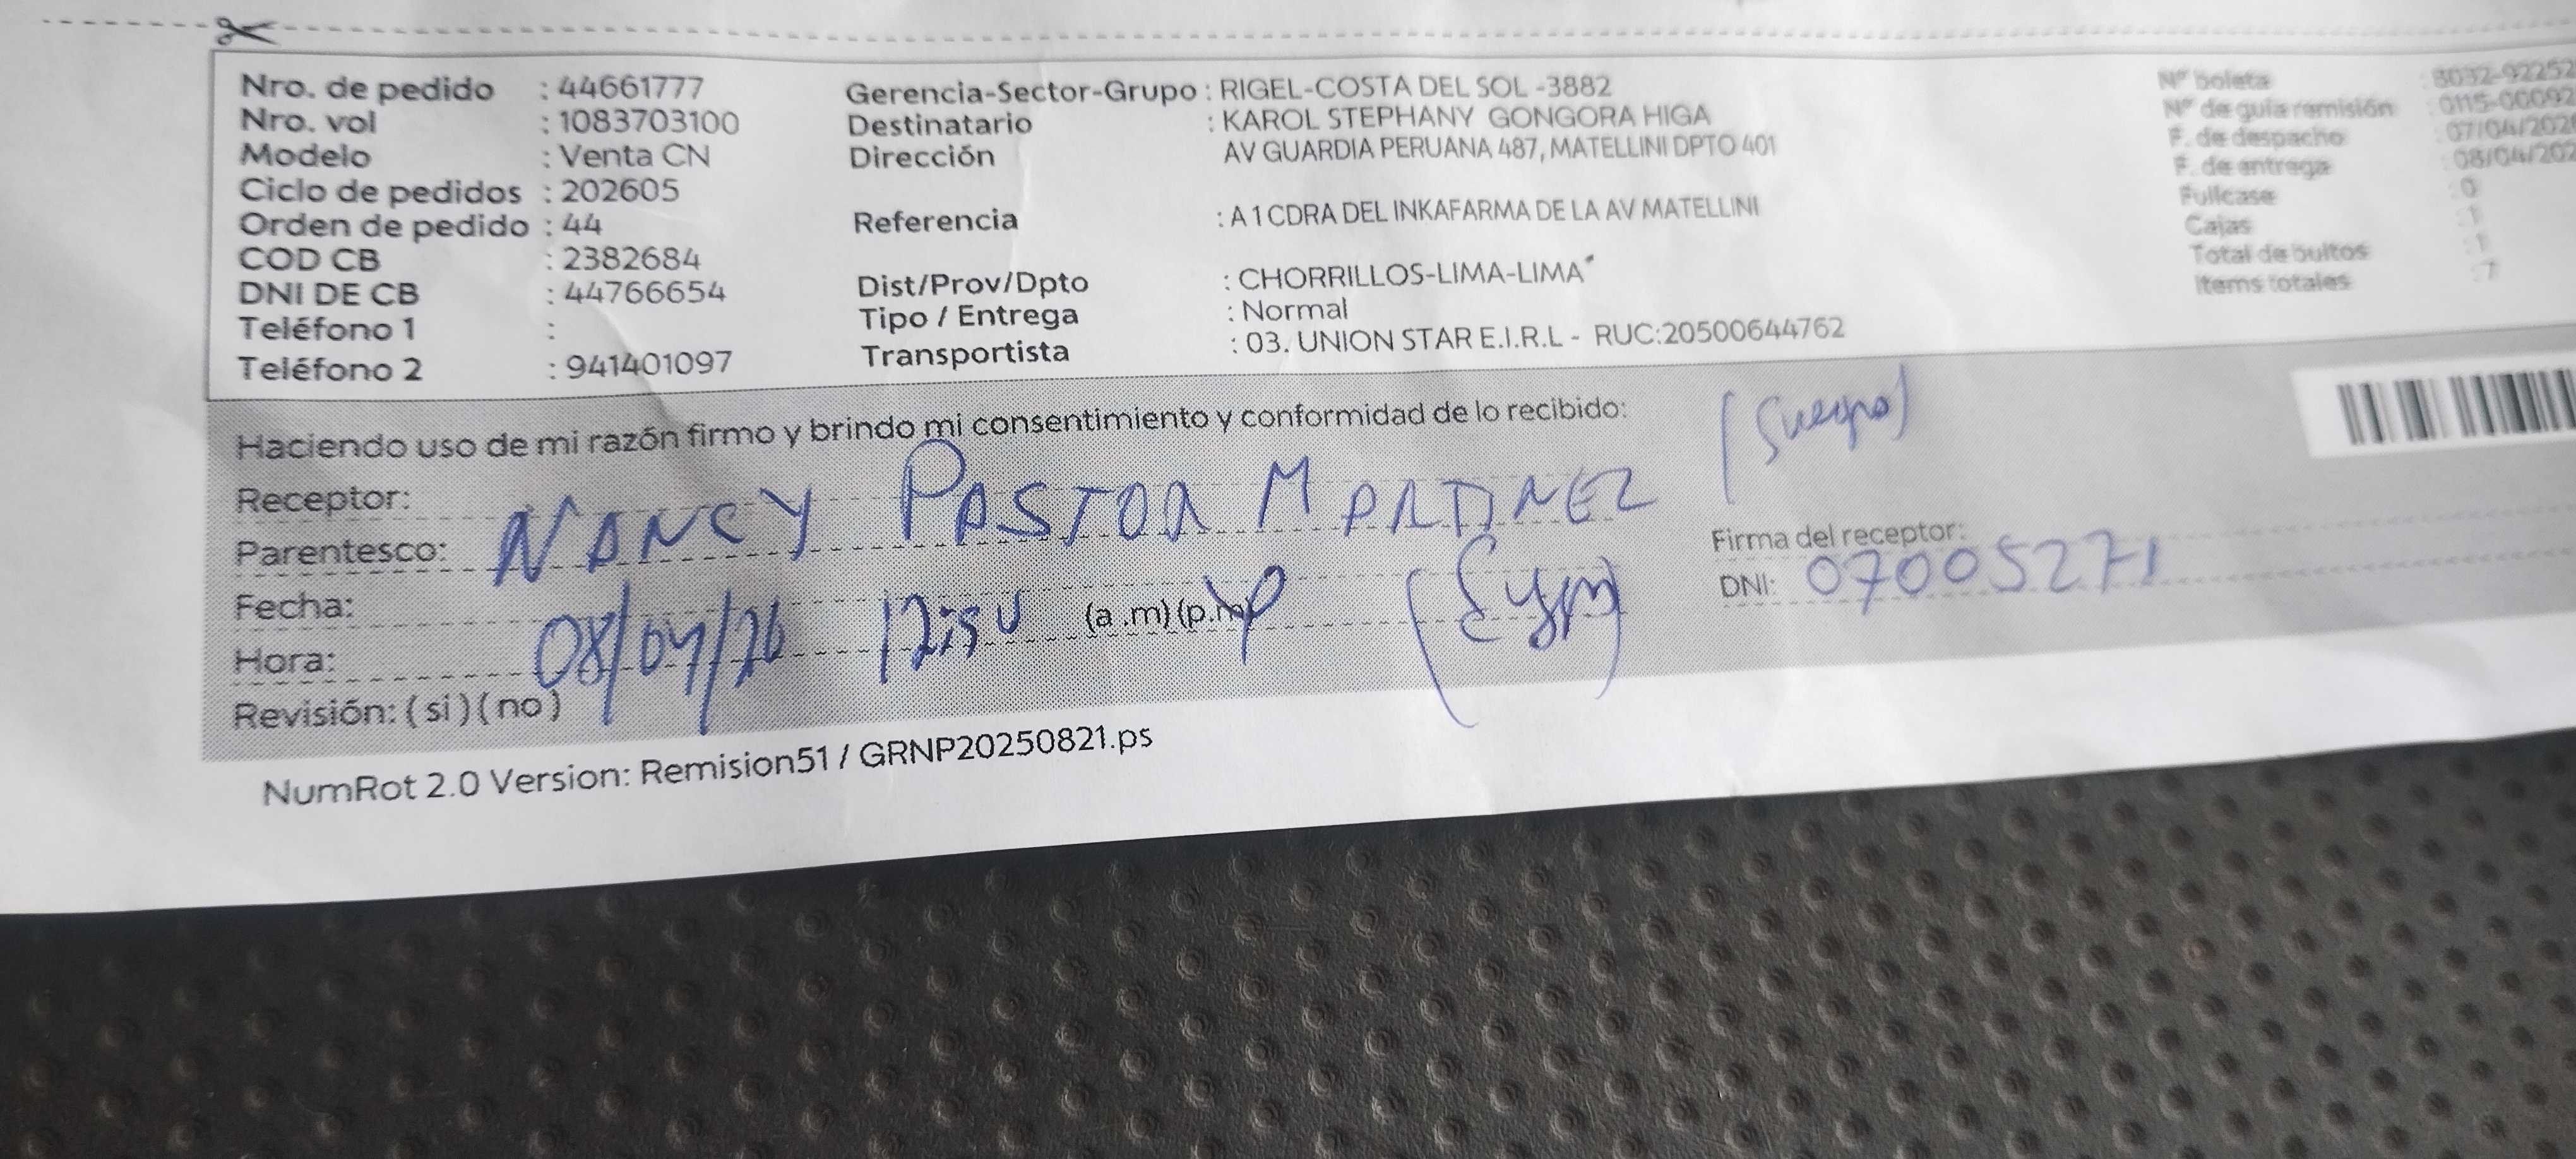 Nro. de pedido : 44661777
Nro. vol : 1083703100
Modelo : Venta CN
Ciclo de pedidos : 202605
Orden de pedido : 44
COD CB : 2382684
DNI DE CB : 44766654
Teléfono 1 :
Teléfono 2 : 941401097
Gerencia-Sector-Grupo : RIGEL-COSTA DEL SOL -3882
Destinatario : KAROL STEPHANY GONGORA HIGA
Dirección AV GUARDIA PERUANA 487, MATELLINI DPTO 401
Referencia : A 1 CDRA DEL INKAFARMA DE LA AV MATELLINI
Dist/Prov/Dpto : CHORRILLOS-LIMA-LIMA
Tipo / Entrega : Normal
Transportista : 03. UNION STAR E.I.R.L - RUC:20500644762
Nº boleta : B032-92252
Nº de guía remisión : 0115-00092
F. de despacho : 07/04/202
F. de entrega : 08/04/202
Fullcase : 0
Cajas : 1
Total de bultos : 1
Items totales : 7
Haciendo uso de mi razón firmo y brindo mi consentimiento y conformidad de lo recibido:
(Suegra)
Receptor:
NANCY PASTOR MARTINEZ
Parentesco:
Firma del receptor:
DNI: 07005271
Fecha:
08/04/26 12:50 (a .m) (p.m)
Hora:
Revisión: ( si ) ( no )
NumRot 2.0 Version: Remision51 / GRNP20250821.ps